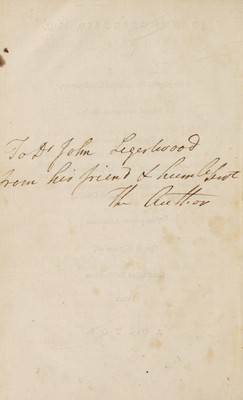 To Dr John Legertwood
from his friend & humble Servt
The Author